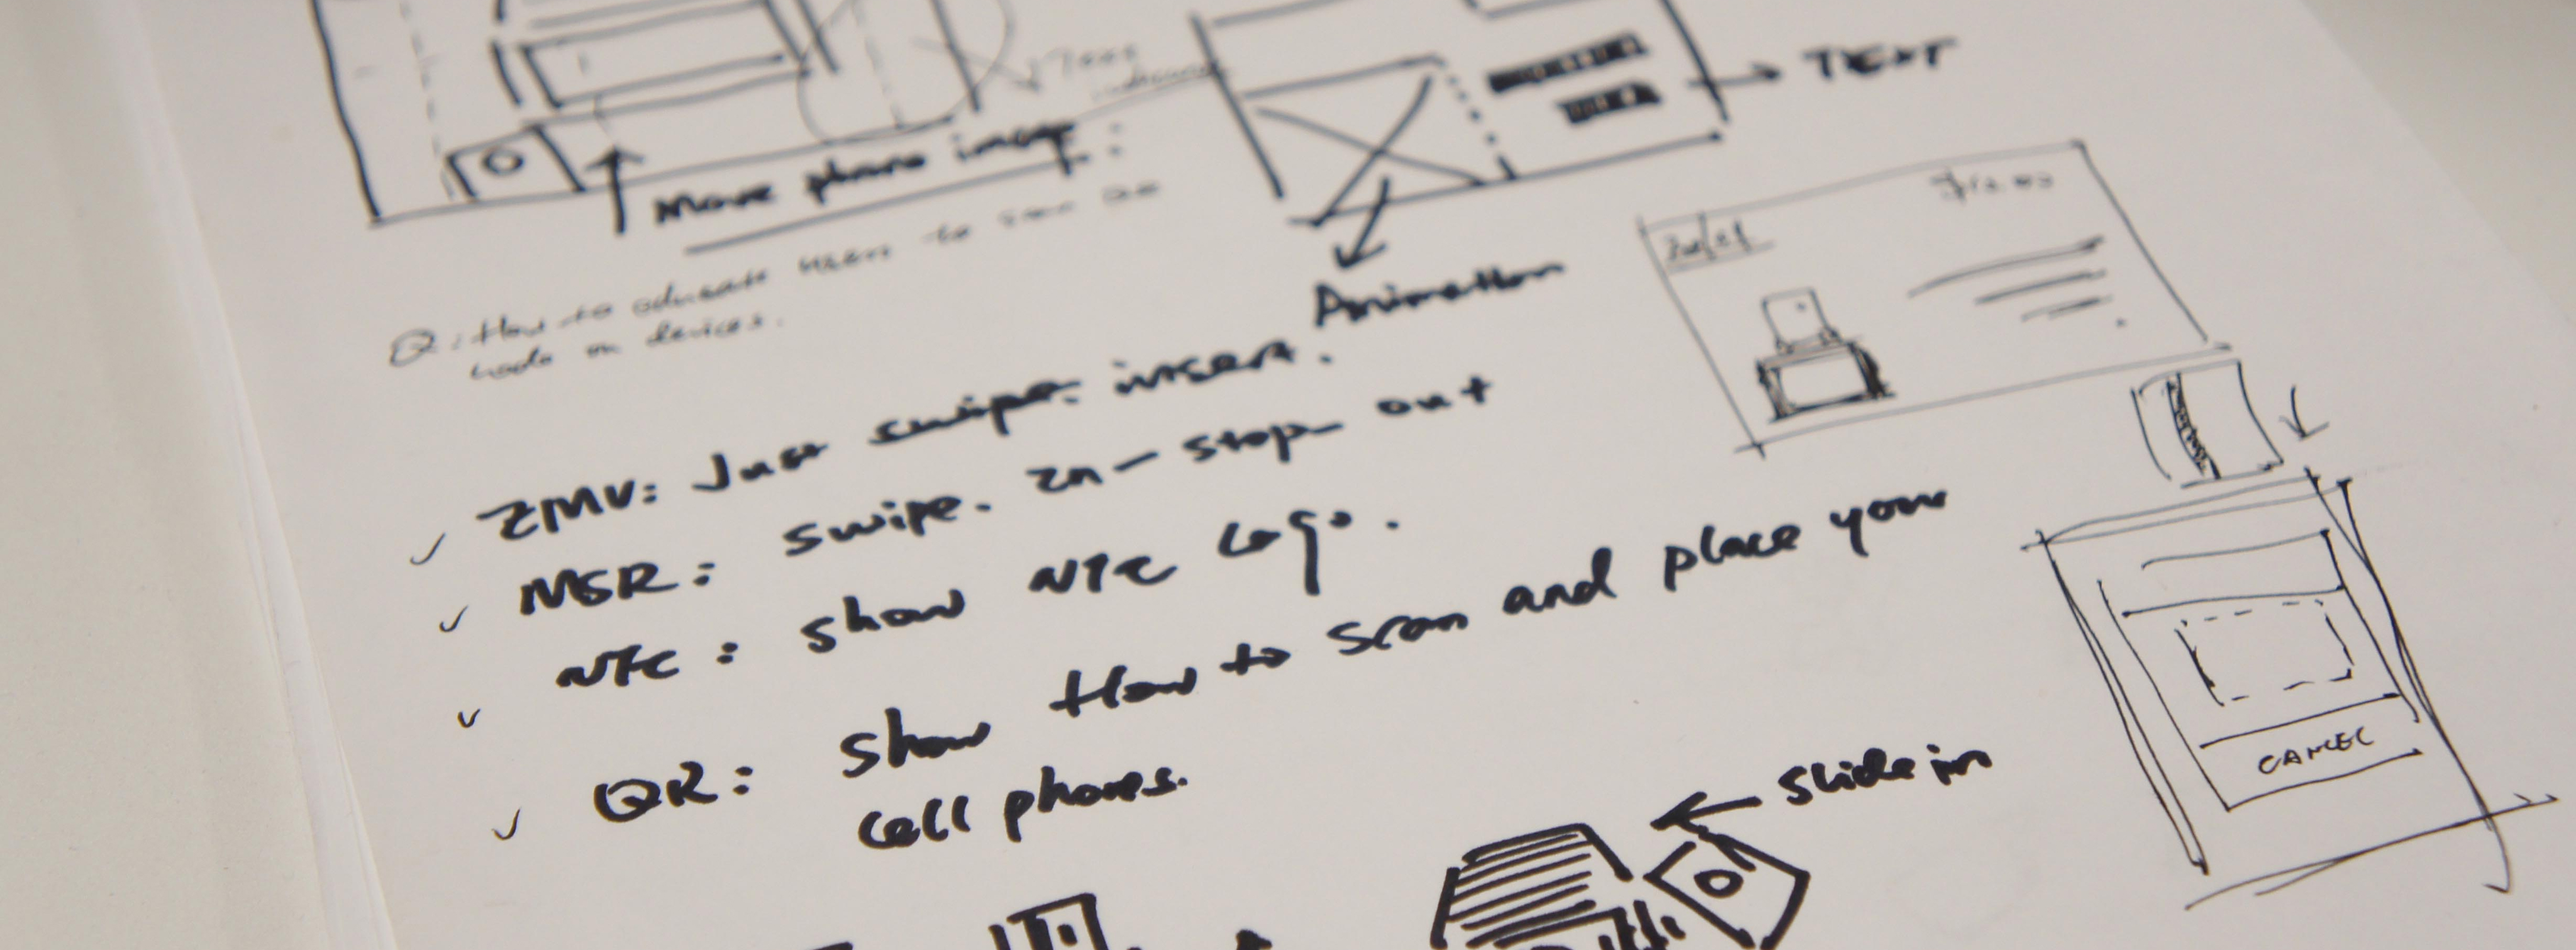 TEXT
Move phone image:
Animation
Q: How to educate users to scan
code on devices.
EMV: Just swipe. insert.
MSR: Swipe. In - stop - out
NFC: show NFC Logo.
QR: Show How to scan and place your
cell phones.
CANCEL
Slide in